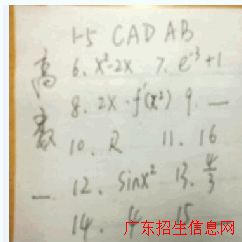 高数一
1-5 CAD AB
6. x²-2x 7. e⁻³+1
8. 2x·f'(x²) 9. —
10. R 11. 16
12. sinx² 13. 4/3
14. 4 15
广东招生信息网